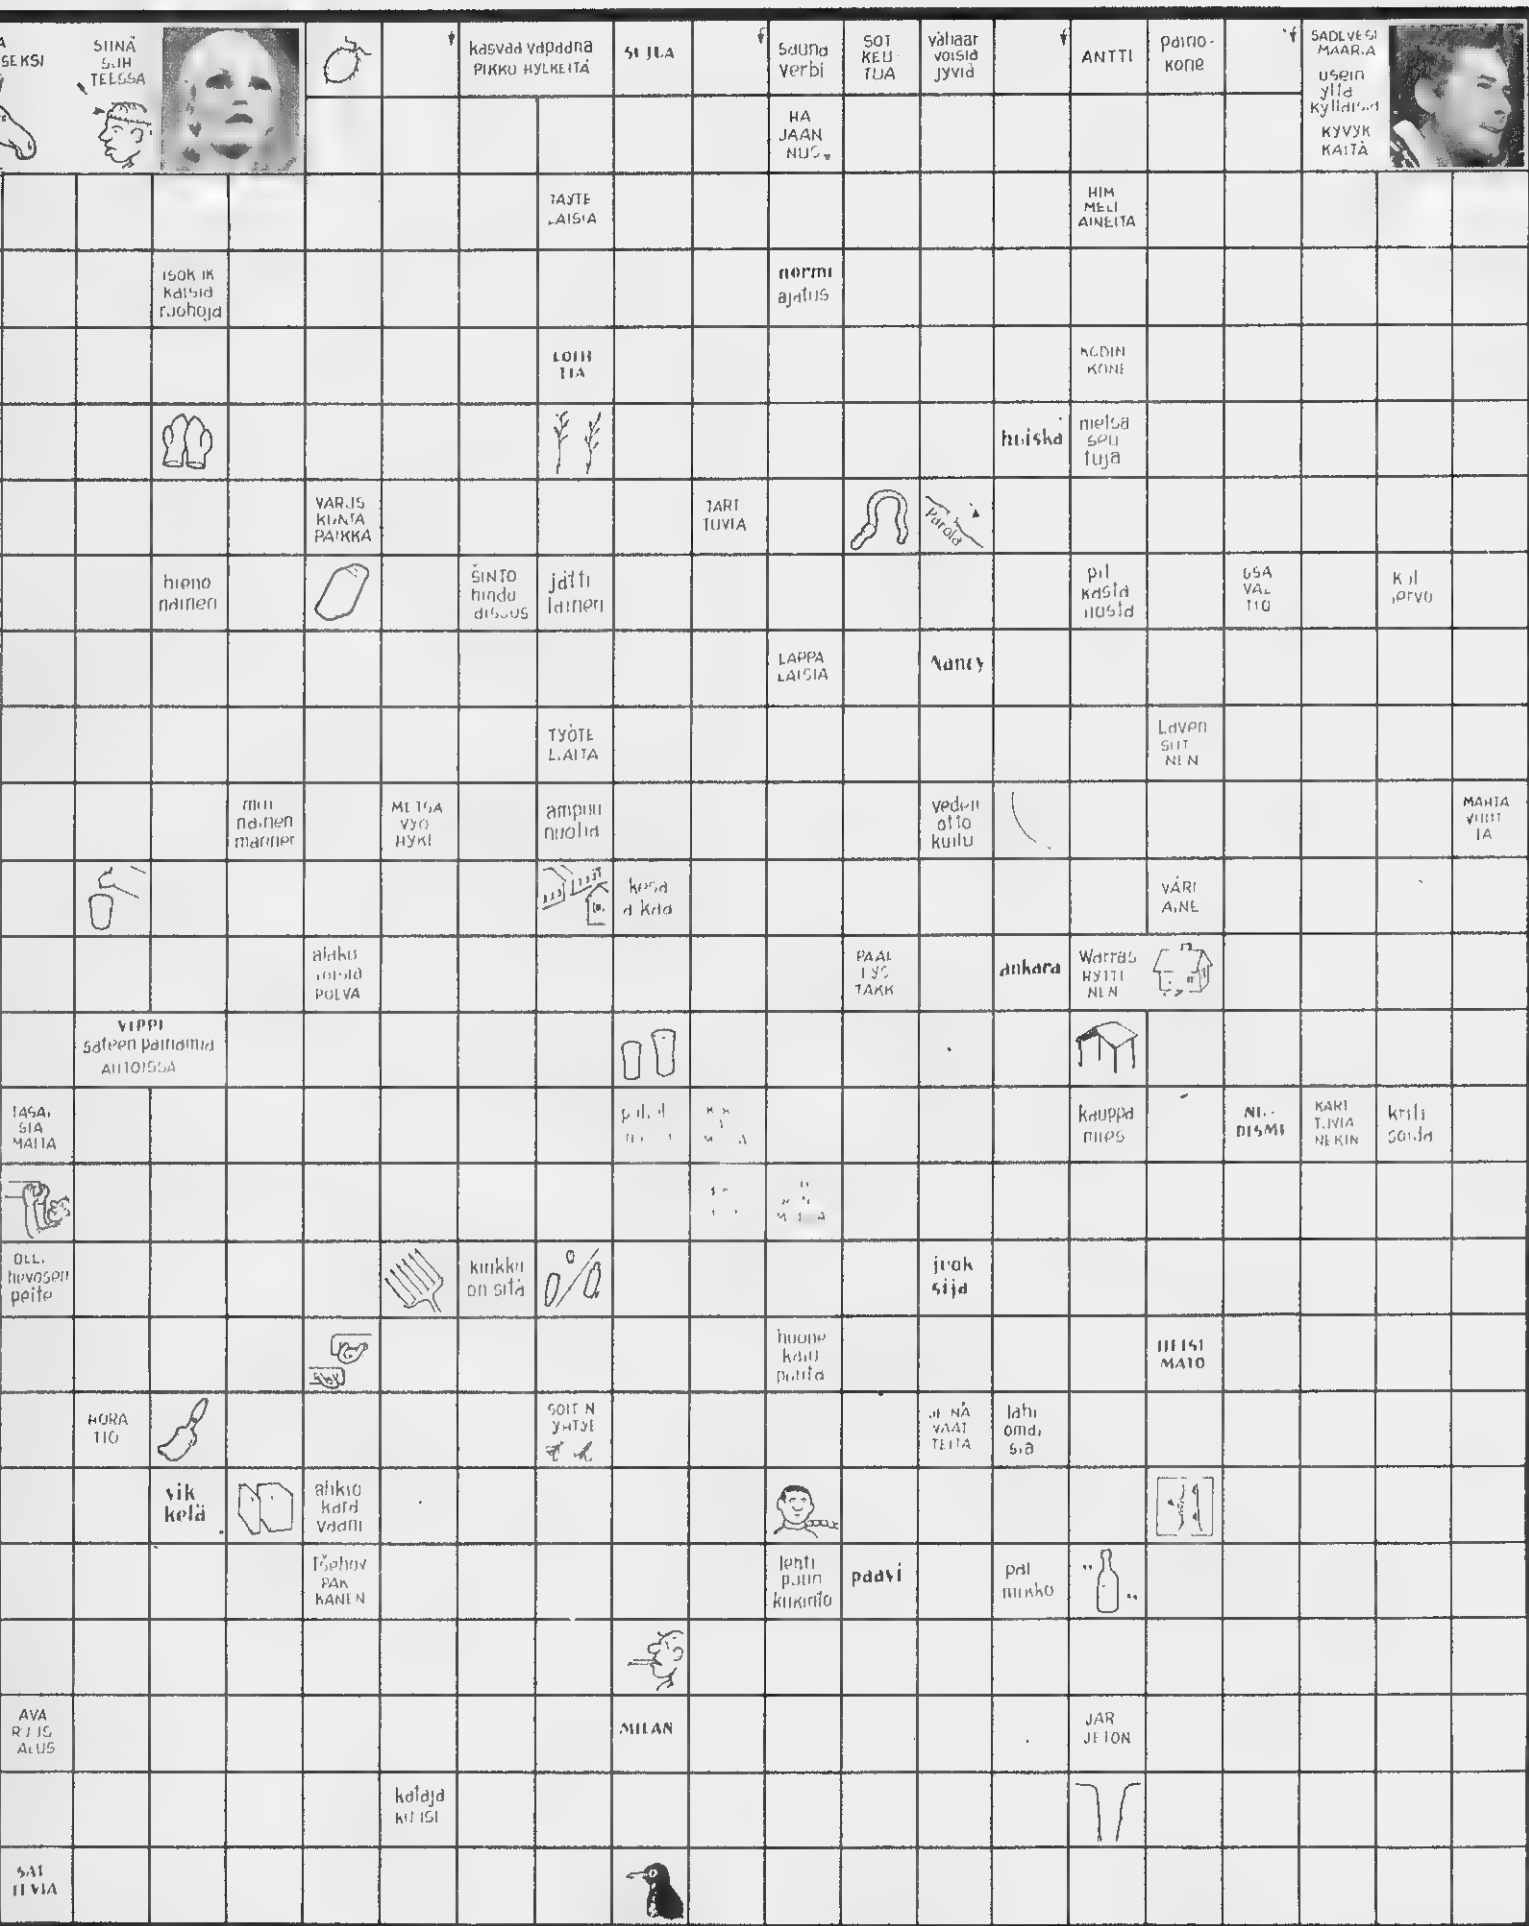 SEKSI
SIINÄ
SUH
TEESSA
kasvaa vapaana
PIKKU HYLKEITÄ
sauna
verbi
SOT
KEU
TUA
vähäar
voisia
jyviä
ANTTI
paino-
kone
SADEVESI
MAARIA
usein
yltä
kylläisiä
KYVYK
KÄITÄ
HA
JAAN
NUS
TÄYTE
LÄISIÄ
HIM
MELI
AINEITA
isok ik
kaisia
ruohoja
normi
ajatus
LOIH
TIA
KODIN
KONE
huiska
metsä
seu
tuja
VARUS
KUNTA
PAIKKA
TART
TUVIA
Parola
hieno
nainen
ŠINTO
hindu
jätti
läinen
pil
kasta
nosta
OSA
VAL
TIO
kal
jervo
LAPPA
LAISIA
Nancy
TYÖTE
LIÄITÄ
Laven
SUT
NEN
mui
nainen
manner
METSÄ
VYÖ
HYKE
ampuu
nuolia
veden
otto
kuilu
MAHTA
VUUT
TA
kesä
aikaa
VÄRI
AINE
alaku
loisia
POLVA
PÄÄL
LYS
TAKK
ankara
Warras
HYTTI
NEN
VIPPI
sateen painamia
AUTOISSA
TASAI
SIA
MAITA
kauppa
mies
NU-
DISMI
KART
TUVIA
NEKIN
kriti
soida
OLL.
hevosen
peite
kinkku
on sitä
juok
sija
huone
kalu
puuta
HEISI
MATO
HORA
TIO
SOITIN
YHTYE
VAAT
TEITA
lähi
omai
sia
vik
kelä
ahkio
kara
vaani
Tšehov
PAK
KANEN
lehti
puun
kukinto
paavi
pai
mikko
AVA
RUUS
ALUS
MILAN
JÄR
JETÖN
kataja
KITISI
SAT
TUVIA